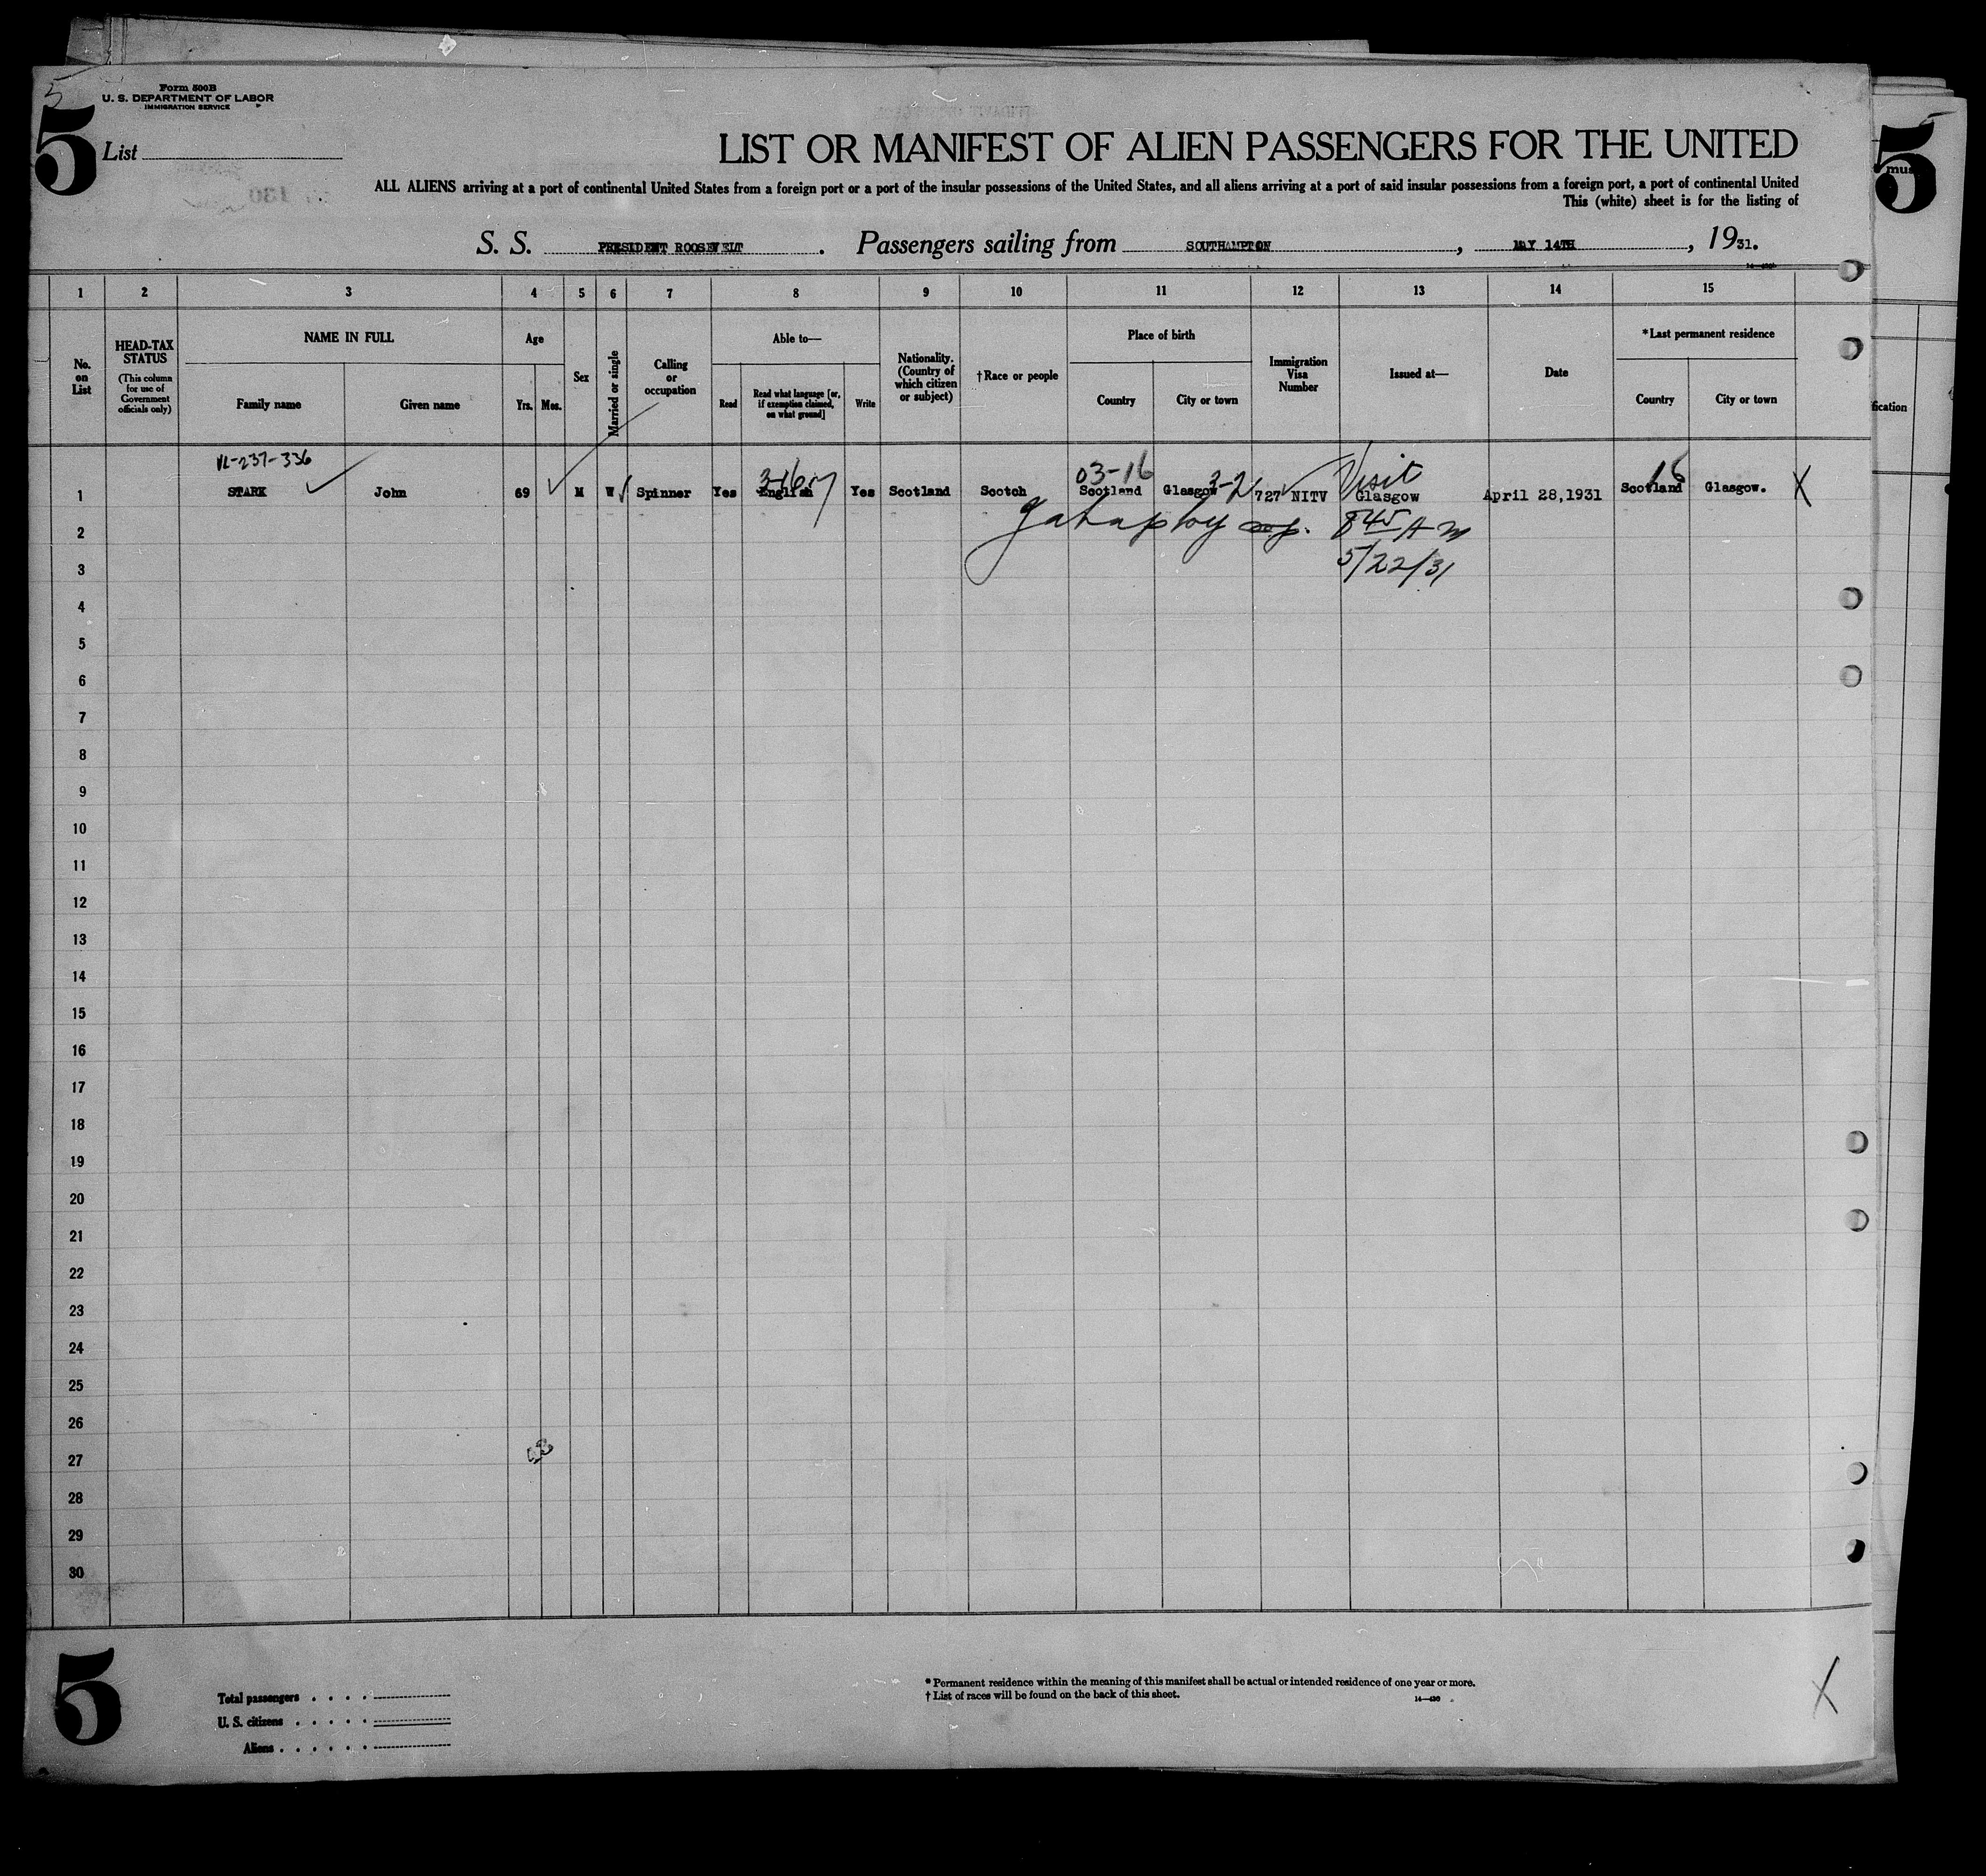 5
Form 500B
U. S. DEPARTMENT OF LABOR
IMMIGRATION SERVICE
5
List
LIST OR MANIFEST OF ALIEN PASSENGERS FOR THE UNITED
5
mus
ALL ALIENS arriving at a port of continental United States from a foreign port or a port of the insular possessions of the United States, and all aliens arriving at a port of said insular possessions from a foreign port, a port of continental United
This (white) sheet is for the listing of
S. S. PRESIDENT ROOSEVELT. Passengers sailing from SOUTHAMPTON, MAY 14TH, 1931.
1 2 3 4 5 6 7 8 9 10 11 12 13 14 15
No. on List
HEAD-TAX STATUS
(This column for use of Government officials only)
NAME IN FULL
Family name Given name
Age
Yrs. Mos.
Sex
Married or single
Calling or occupation
Able to—
Read
Read what language [or, if exemption claimed, on what ground]
Write
Nationality. (Country of which citizen or subject)
†Race or people
Place of birth
Country City or town
Immigration Visa Number
Issued at—
Date
*Last permanent residence
Country City or town
fication
VL-237-336 03-16 3-2 Visit
1 STARK John 69 M W Spinner Yes English Yes Scotland Scotch Scotland Glasgow 727 NITV Glasgow April 28,1931 Scotland Glasgow. X
2 845 A M
3 5/22/31
4
5
6
7
8
9
10
11
12
13
14
15
16
17
18
19
20
21
22
23
24
25
26
27
28
29
30
5
Total passengers . . . .
U. S. citizens . . . . .
Aliens . . . . . .
* Permanent residence within the meaning of this manifest shall be actual or intended residence of one year or more.
† List of races will be found on the back of this sheet.
14—430
X